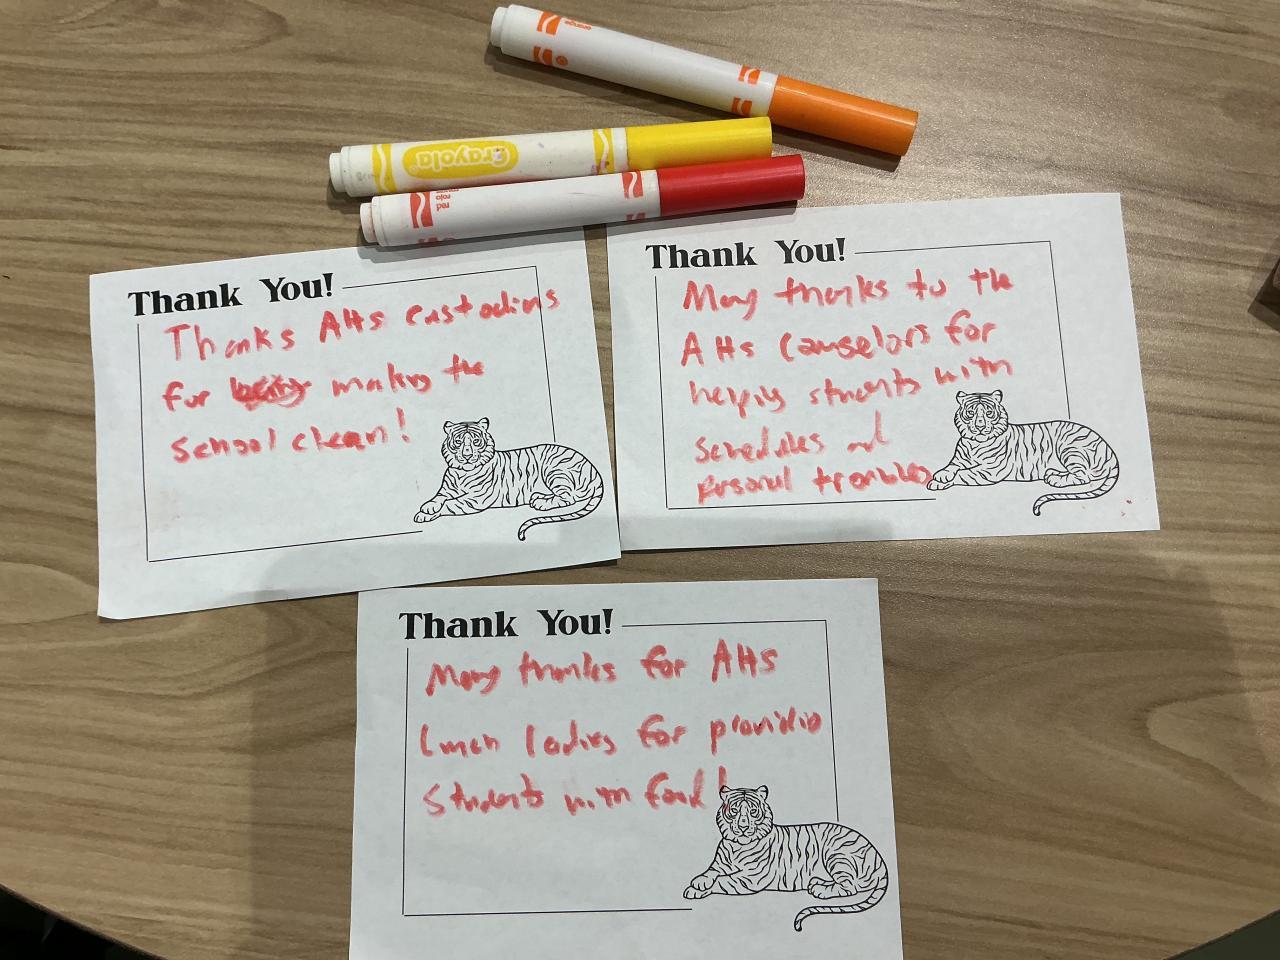 orange
Crayola
red
rojo
Thank You!
Thanks AHS custodians
for making the
school clean!
Thank You!
Many thanks to the
AHS Counselors for
helping students with
schedules and
personal troubles
Thank You!
Many thanks for AHS
Lunch ladies for providing
students with food!